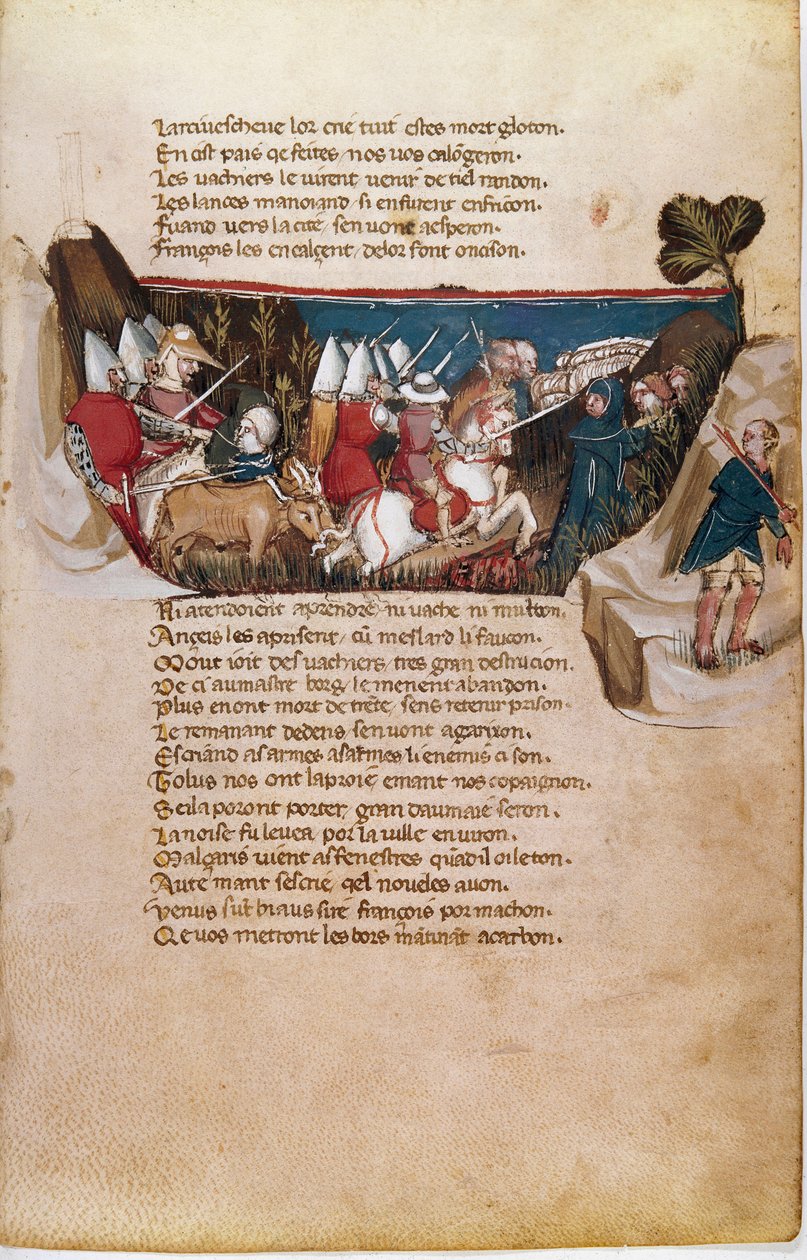 Larcivescheve lor crie tuit estes mort gloton.
En cist païs qe feites/ nos vos calongeron.
Les vachiers le virent venir de tiel randon.
Les lances manoiand/ si en furent en friçon.
Fuiand vers la cite/ sen vont a esperon.
François les encalçent/ de lor font oncison.
Ni atendoient a prendre/ ni vache ni multon.
Ançeis les aprisent/ cū meslard li faucon.
Mout ioit des vachiers/ tres gran destrucion.
De ci au mastre borg/ le menent abandon.
Plus en ont mort de trēte/ sens retenir prison.
Le remanant dedens/ sen vont a garixon.
Escriand as armes as armes/ li enemis ci son.
Tolus nos ont la proie/ e mant nos copaignon.
Se il a poront porter/ gran daumaie seron.
La noise fu levea por la ville environ.
Malçaris vient as fenestres quād il oi le ton.
Aute mant sescrie/ qel noveles avon.
Venus sūt biaus sire françois por machon.
Qe vos metront les bors mātināt a carbon.